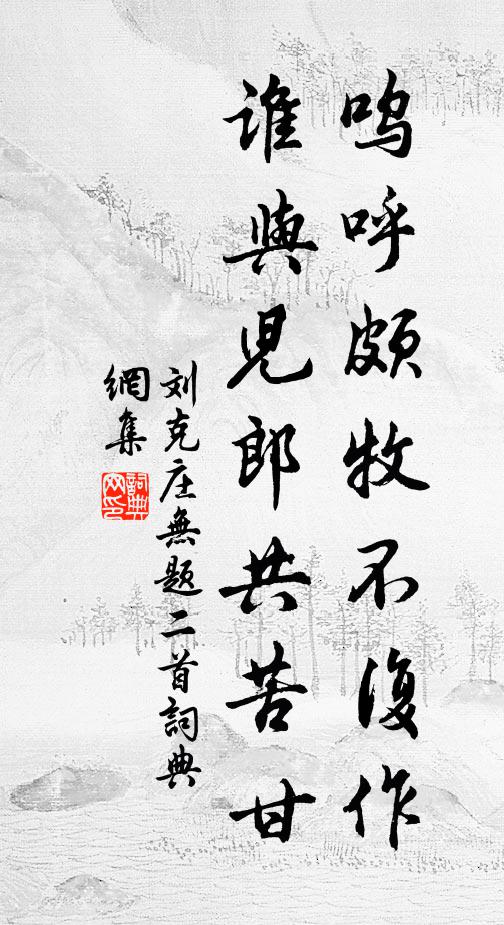 呜呼頗牧不復作
誰與児郎共苦甘
刘克庄無题二首詞典
網集
詞典
网印